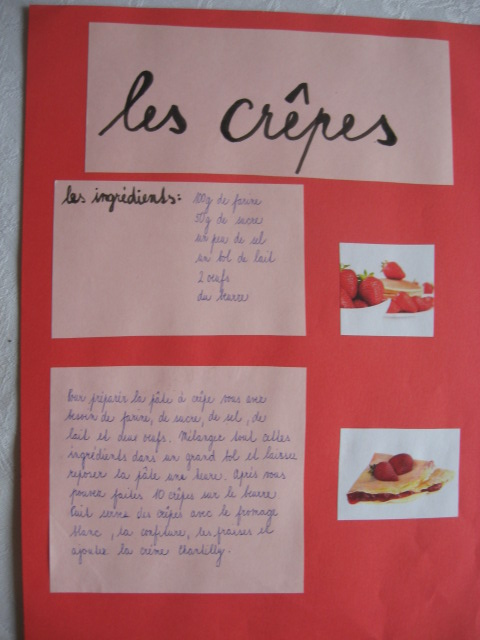 les crêpes
les ingrédients:
100g de farine
50g de sucre
un peu de sel
un bol de lait
2 œufs
du beurre
Pour préparer la pâte à crêpe vous avez
besoin de farine, de sucre, de sel, de
lait et deux œufs. Mélangez tout cettes
ingrédients dans un grand bol et laissez
reposer la pâte une heure. Après vous
pouvez faites 10 crêpes sur le beurre
Cuit des crêpes avec le fromage
blanc, la confiture, les fraises et
ajoutez la crème Chantilly.